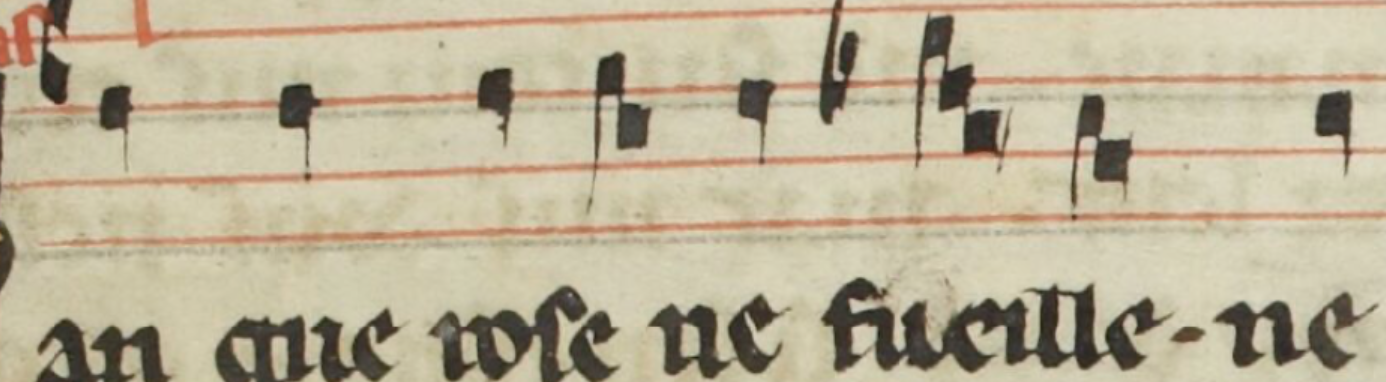 an que rose ne fueille · ne